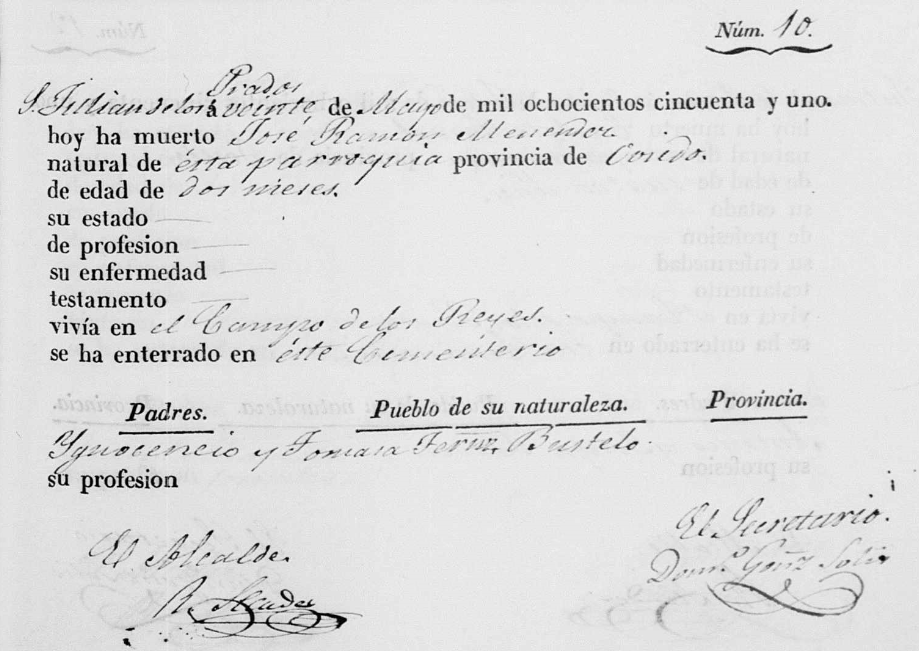 Núm. 10.
Prados
S. Julian de los á veinte de Mayo de mil ochocientos cincuenta y uno.
hoy ha muerto José Ramón Menendez
natural de ésta parroquia provincia de Oviedo.
de edad de dos meses.
su estado
de profesion
su enfermedad
testamento
vivía en el Campo de los Reyes.
se ha enterrado en éste Cementerio
Padres. Pueblo de su naturaleza. Provincia.
Ygnocencio y Tomasa Fernz Bustelo.
su profesion
El Alcalde. El Secretario.
Domo. Gonz